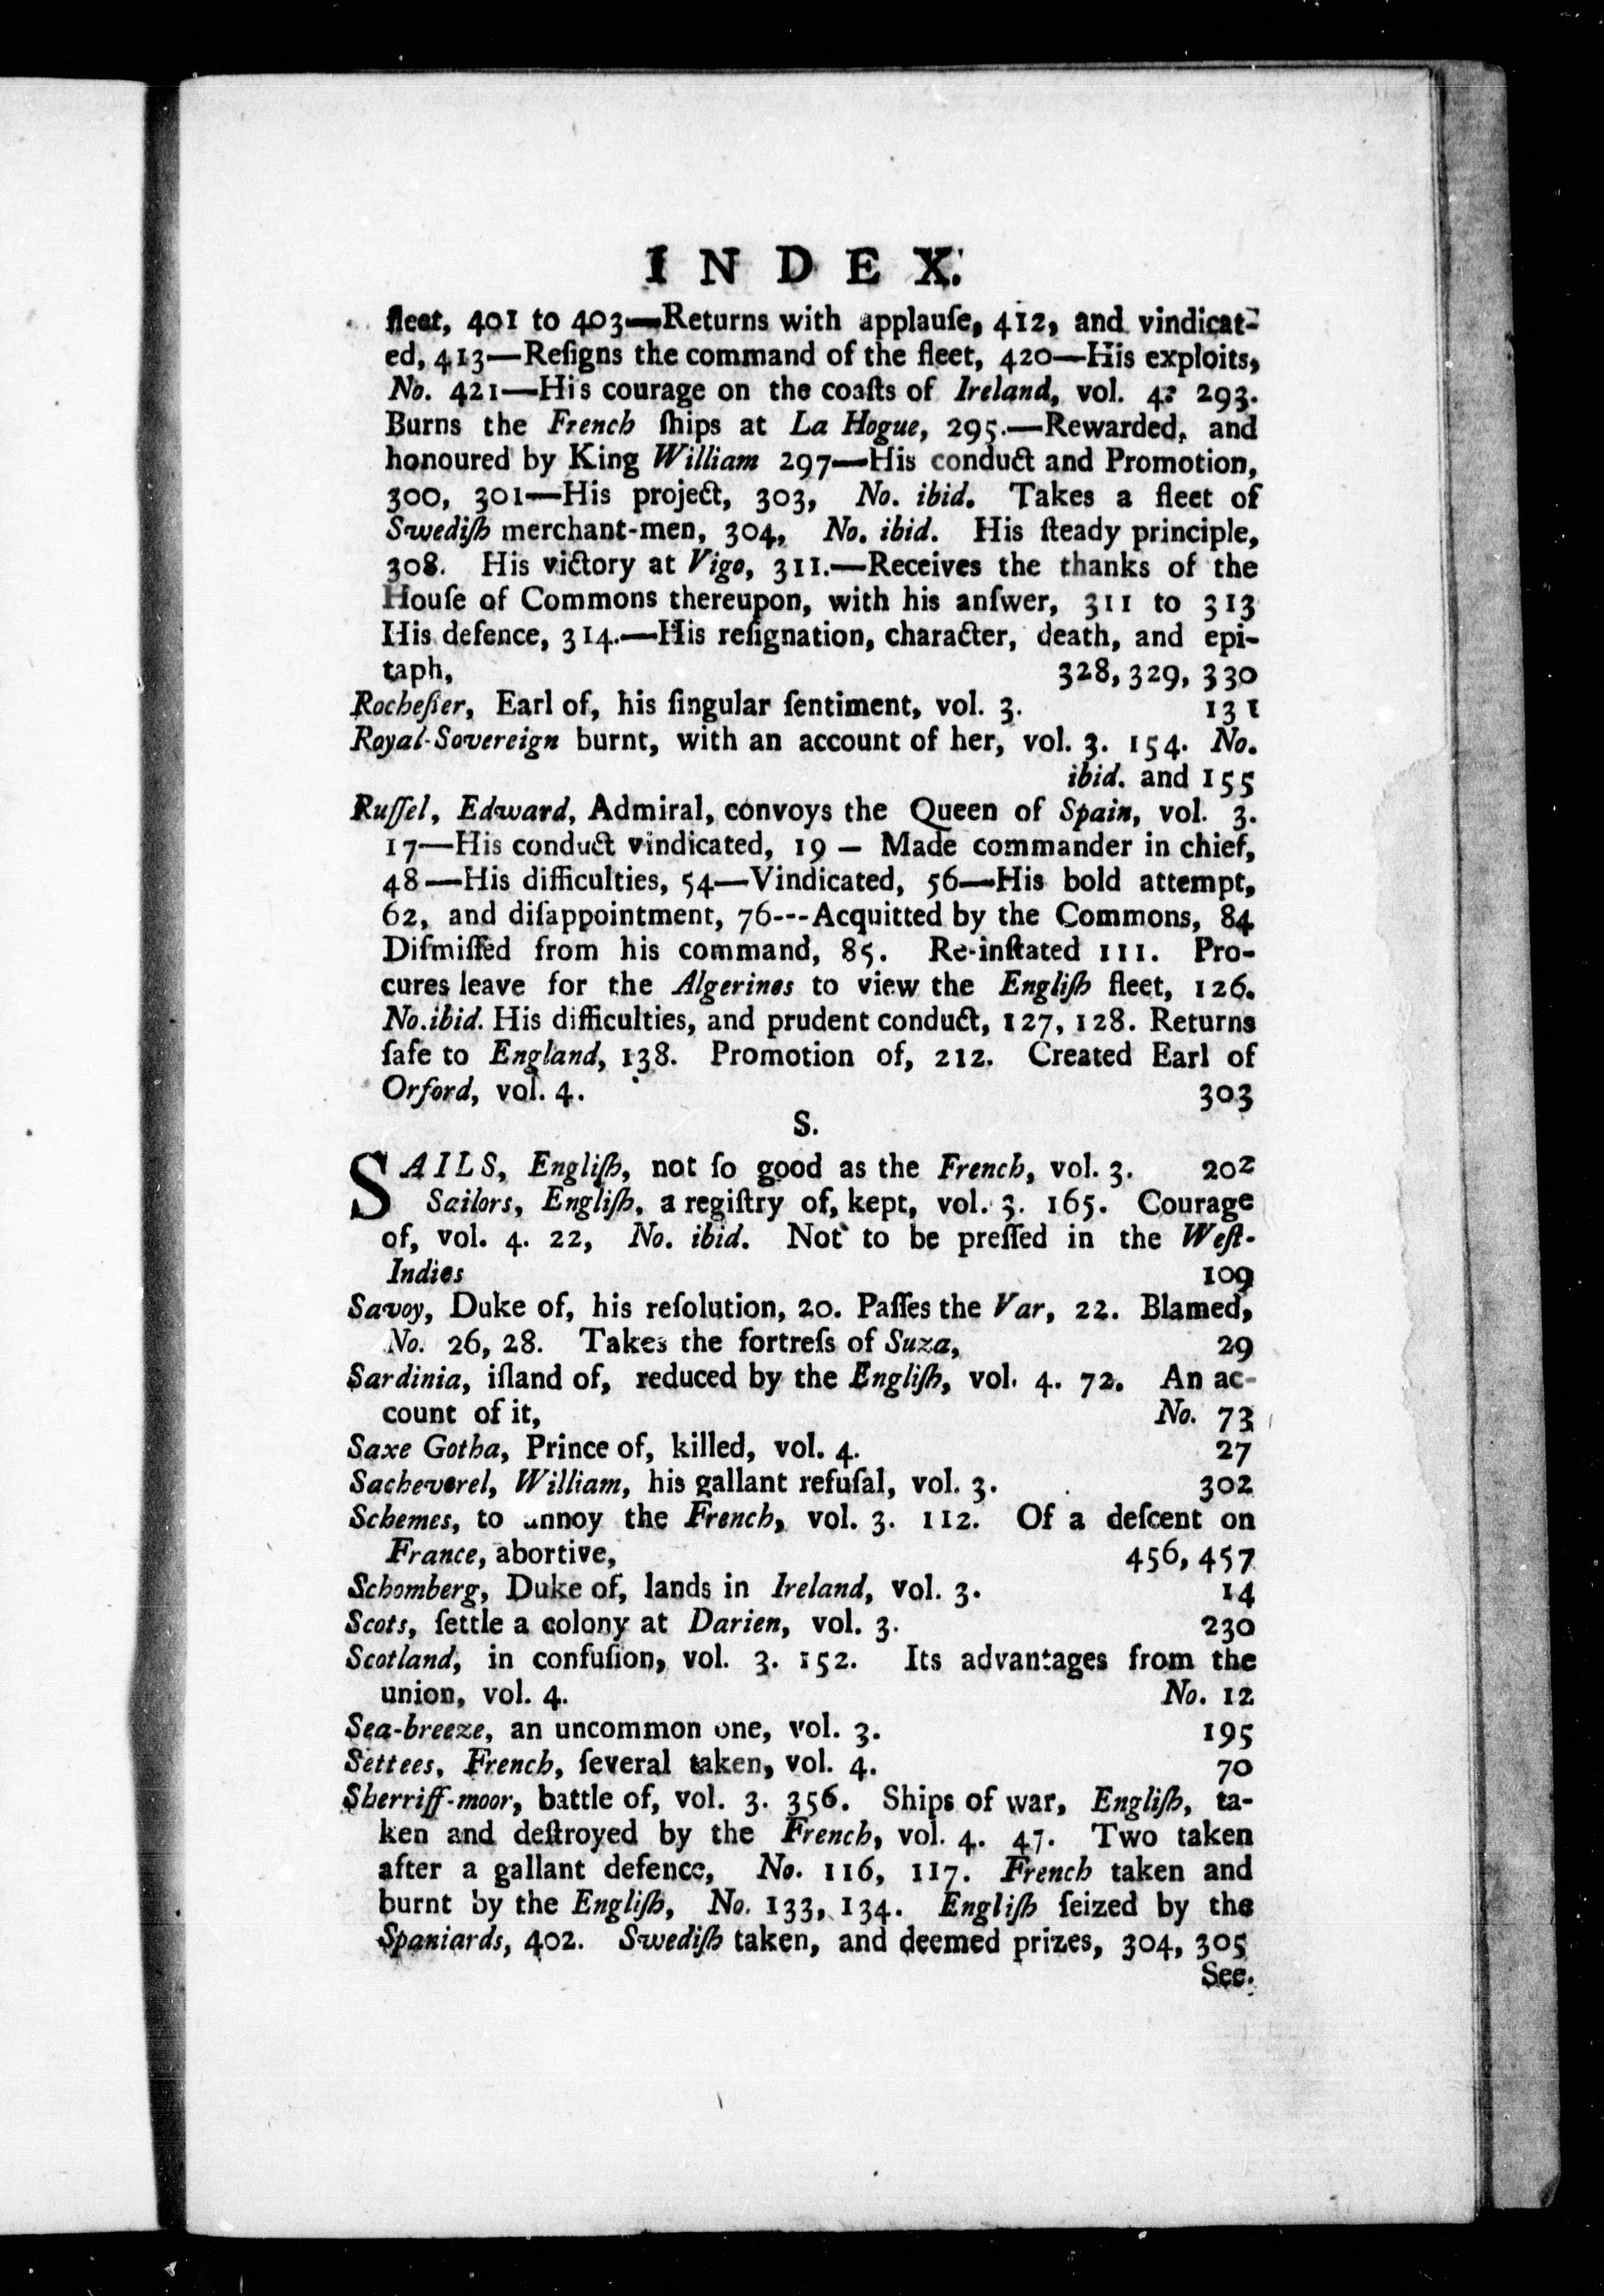 INDEX.
fleet, 401 to 403—Returns with applauſe, 412, and vindicat-
ed, 413—Reſigns the command of the fleet, 420—His exploits,
No. 421—His courage on the coaſts of Ireland, vol. 4. 293.
Burns the French ſhips at La Hogue, 295.—Rewarded, and
honoured by King William 297—His conduct and Promotion,
300, 301—His project, 303, No. ibid. Takes a fleet of
Swediſh merchant-men, 304, No. ibid. His ſteady principle,
308. His victory at Vigo, 311.—Receives the thanks of the
Houſe of Commons thereupon, with his anſwer, 311 to 313
His defence, 314.—His reſignation, character, death, and epi-
taph, 328, 329, 330
Rocheſter, Earl of, his ſingular ſentiment, vol. 3. 131
Royal-Sovereign burnt, with an account of her, vol. 3. 154. No.
ibid. and 155
Ruſſel, Edward, Admiral, convoys the Queen of Spain, vol. 3.
17—His conduct vindicated, 19 — Made commander in chief,
48—His difficulties, 54—Vindicated, 56—His bold attempt,
62, and diſappointment, 76---Acquitted by the Commons, 84
Diſmiſſed from his command, 85. Re-inſtated 111. Pro-
cures leave for the Algerines to view the Engliſh fleet, 126.
No. ibid. His difficulties, and prudent conduct, 127, 128. Returns
ſafe to England, 138. Promotion of, 212. Created Earl of
Orford, vol. 4. 303
S.
SAILS, Engliſh, not ſo good as the French, vol. 3. 202
Sailors, Engliſh, a regiſtry of, kept, vol. 3. 165. Courage
of, vol. 4. 22, No. ibid. Not to be preſſed in the Weſt-
Indies 109
Savoy, Duke of, his reſolution, 20. Paſſes the Var, 22. Blamed,
No. 26, 28. Takes the fortreſs of Suza, 29
Sardinia, iſland of, reduced by the Engliſh, vol. 4. 72. An ac-
count of it, No. 73
Saxe Gotha, Prince of, killed, vol. 4. 27
Sacheverel, William, his gallant refuſal, vol. 3. 302
Schemes, to annoy the French, vol. 3. 112. Of a deſcent on
France, abortive, 456, 457
Schomberg, Duke of, lands in Ireland, vol. 3. 14
Scots, ſettle a colony at Darien, vol. 3. 230
Scotland, in confuſion, vol. 3. 152. Its advantages from the
union, vol. 4. No. 12
Sea-breeze, an uncommon one, vol. 3. 195
Settees, French, ſeveral taken, vol. 4. 70
Sherriff-moor, battle of, vol. 3. 356. Ships of war, Engliſh, ta-
ken and deſtroyed by the French, vol. 4. 47. Two taken
after a gallant defence, No. 116, 117. French taken and
burnt by the Engliſh, No. 133, 134. Engliſh ſeized by the
Spaniards, 402. Swediſh taken, and deemed prizes, 304, 305
See.